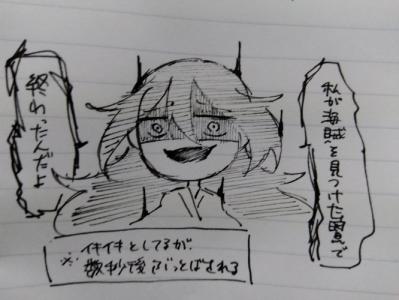 私が海賊を見つけた時点で
終わったんだよ
イキイキとしてるが、
※数秒後ぶっとばされる